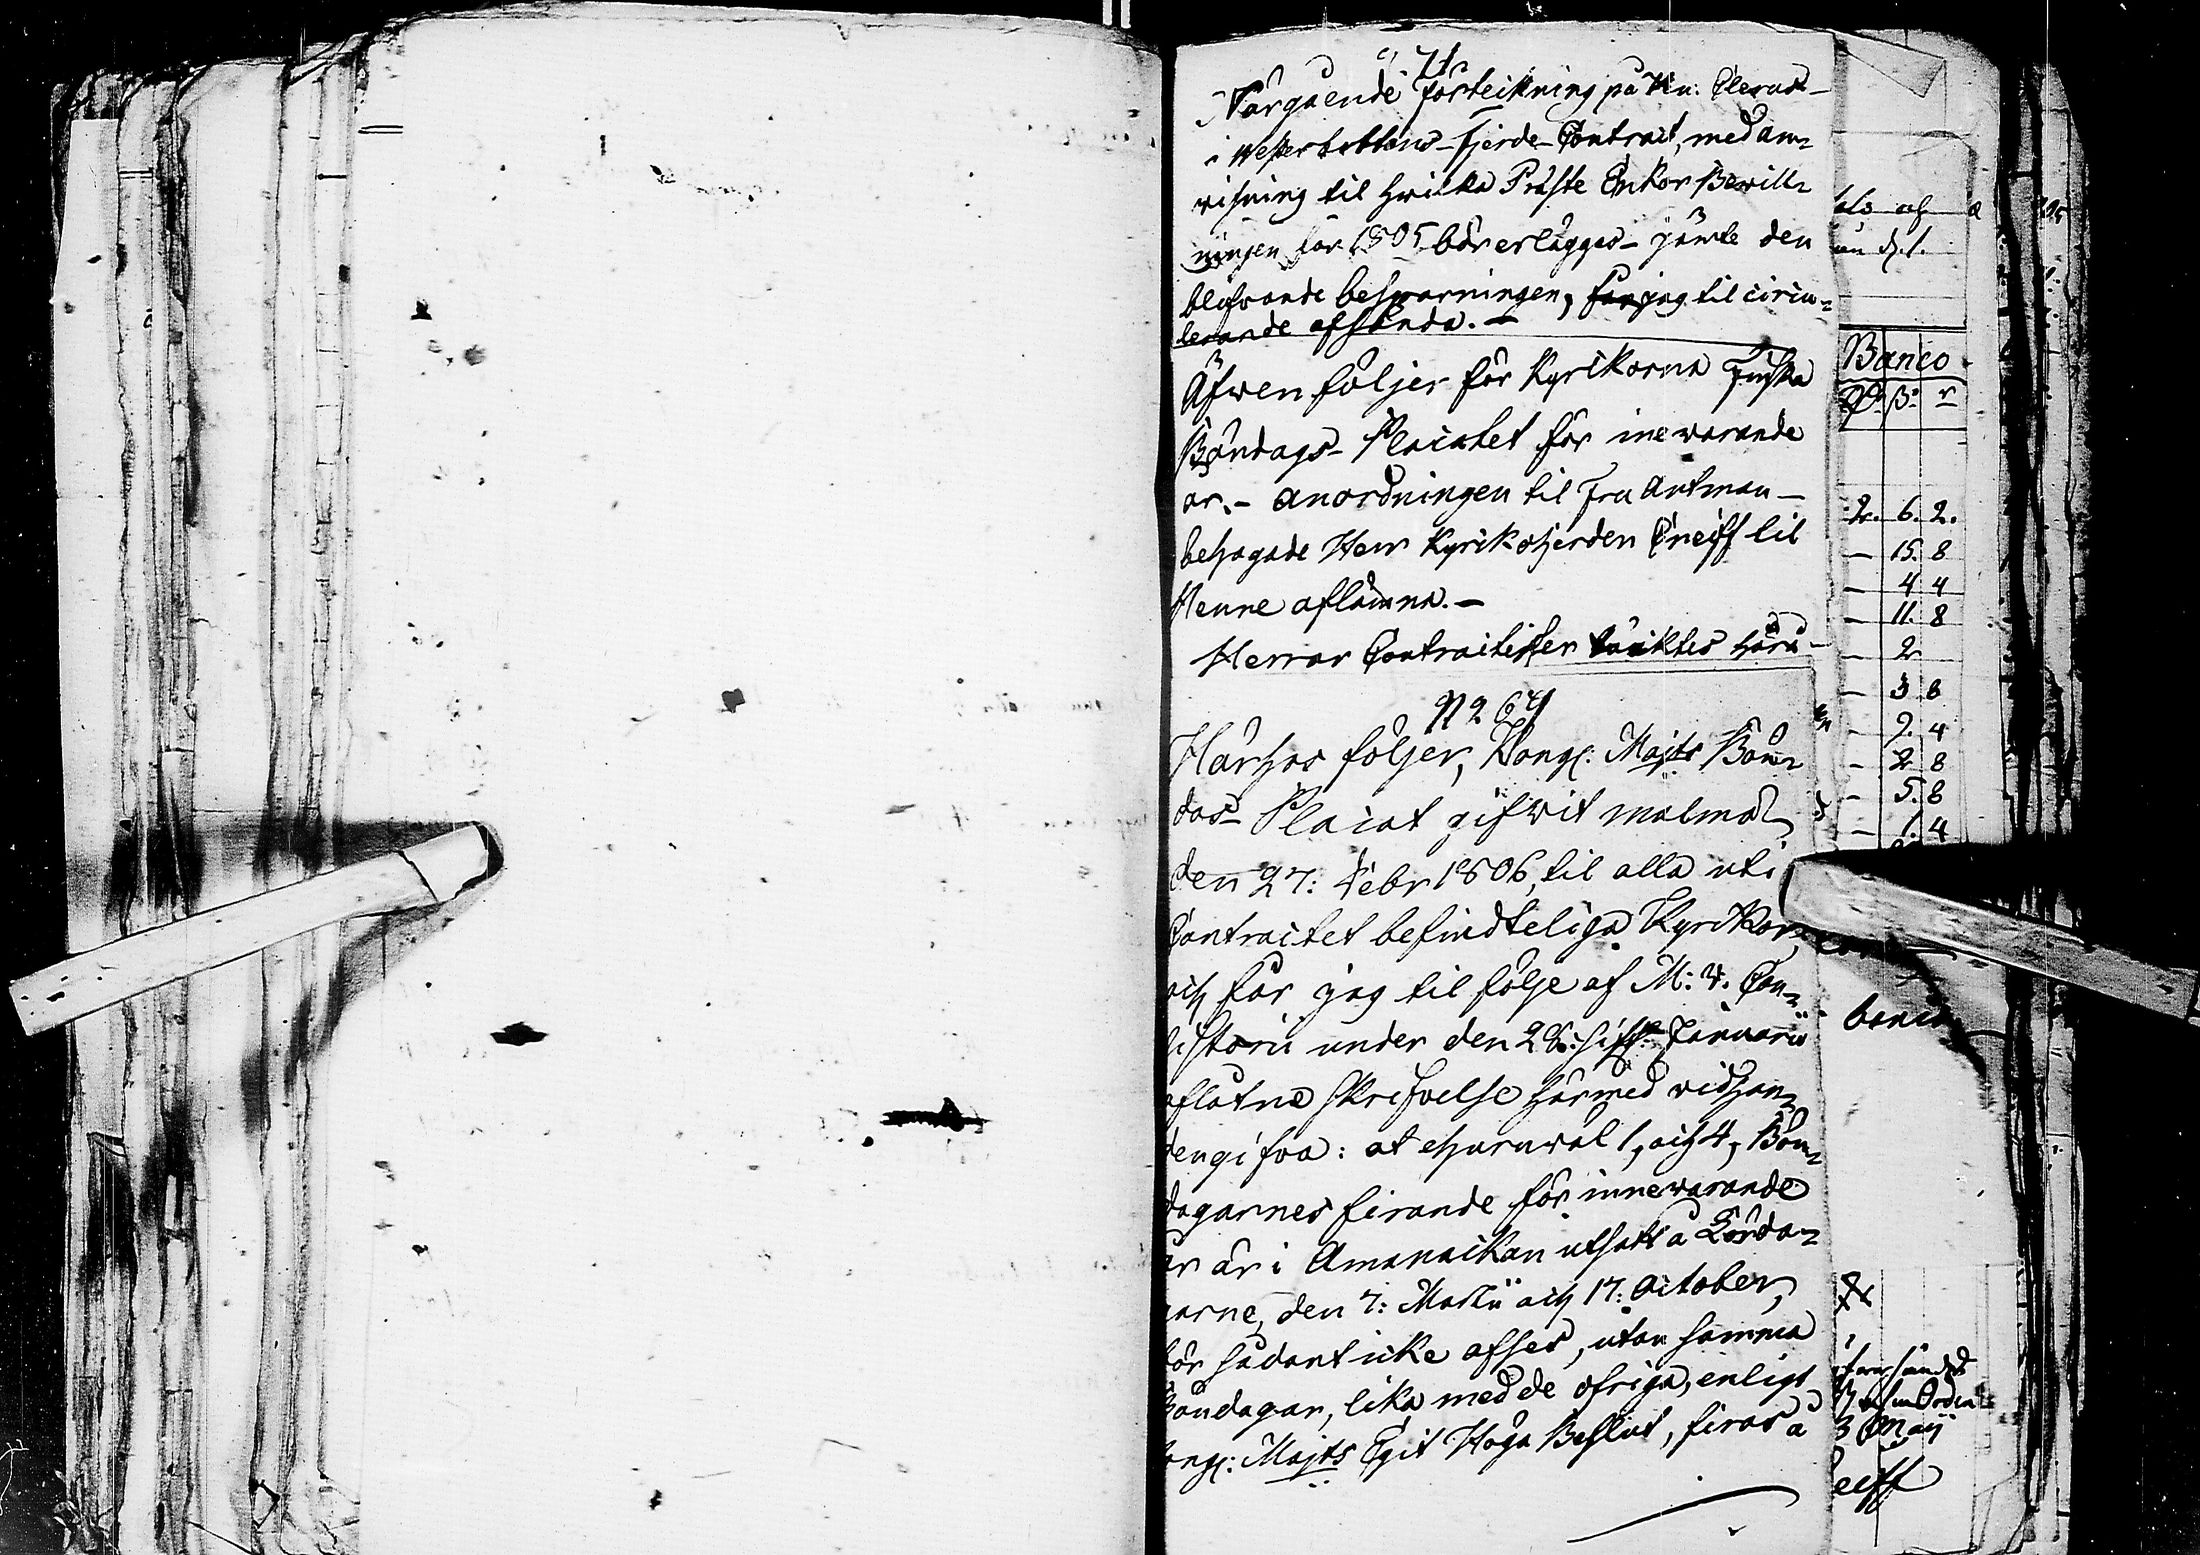 71.
Närgående förteikning på Vn: Clerus
i Westerbottens Fjerde Contract, med an¬
visning til hvilka Präste Enkor Bewill¬
ningen för 1805 bör erläggas jämte den
blifvande besparningen, får jag til circu¬
lerande afsända. —
Äfwen följer för Kyrkorna Finska
Böndags-Placatet för inewarande
år. – Anordningen til Fru Antman
behagade Herr Kyrkoherden Eneiff til
Henne aflämna. —
Herrar Contractister täcktes härå
N 2 64
Härhos följer, Kongl: Majts Bön¬
das Placat gifwit Malmö
den 27: Febr 1806, til alla uti
Contractet befindteliga Kyrkor,
och får jag til följe af M: V. Con¬
sistorii under den 28: sistl. Januarii
aflåtne skrifvelse härmed vidhan¬
dengifva: at ehuruwäl 1, och 4, Bön¬
dagarnes firande för innewarande
år är i Amanackan utsatt å Lörda¬
garne, den 7: Martii och 17: October,
bör sådant icke afses, utan samma
Böndagar, lika med de öfriga, enligt
Kongl: Majts Egit Höga Beslut, firas å
als och
än d. 1.
Banco
Rd. ß. r
2. 6. 2.
— 15. 8
— 4 4
— 11. 8
— 2
— 3 8
— 9. 4
— 2 8
— 5. 8
— 1. 4
3 Maij
eiff